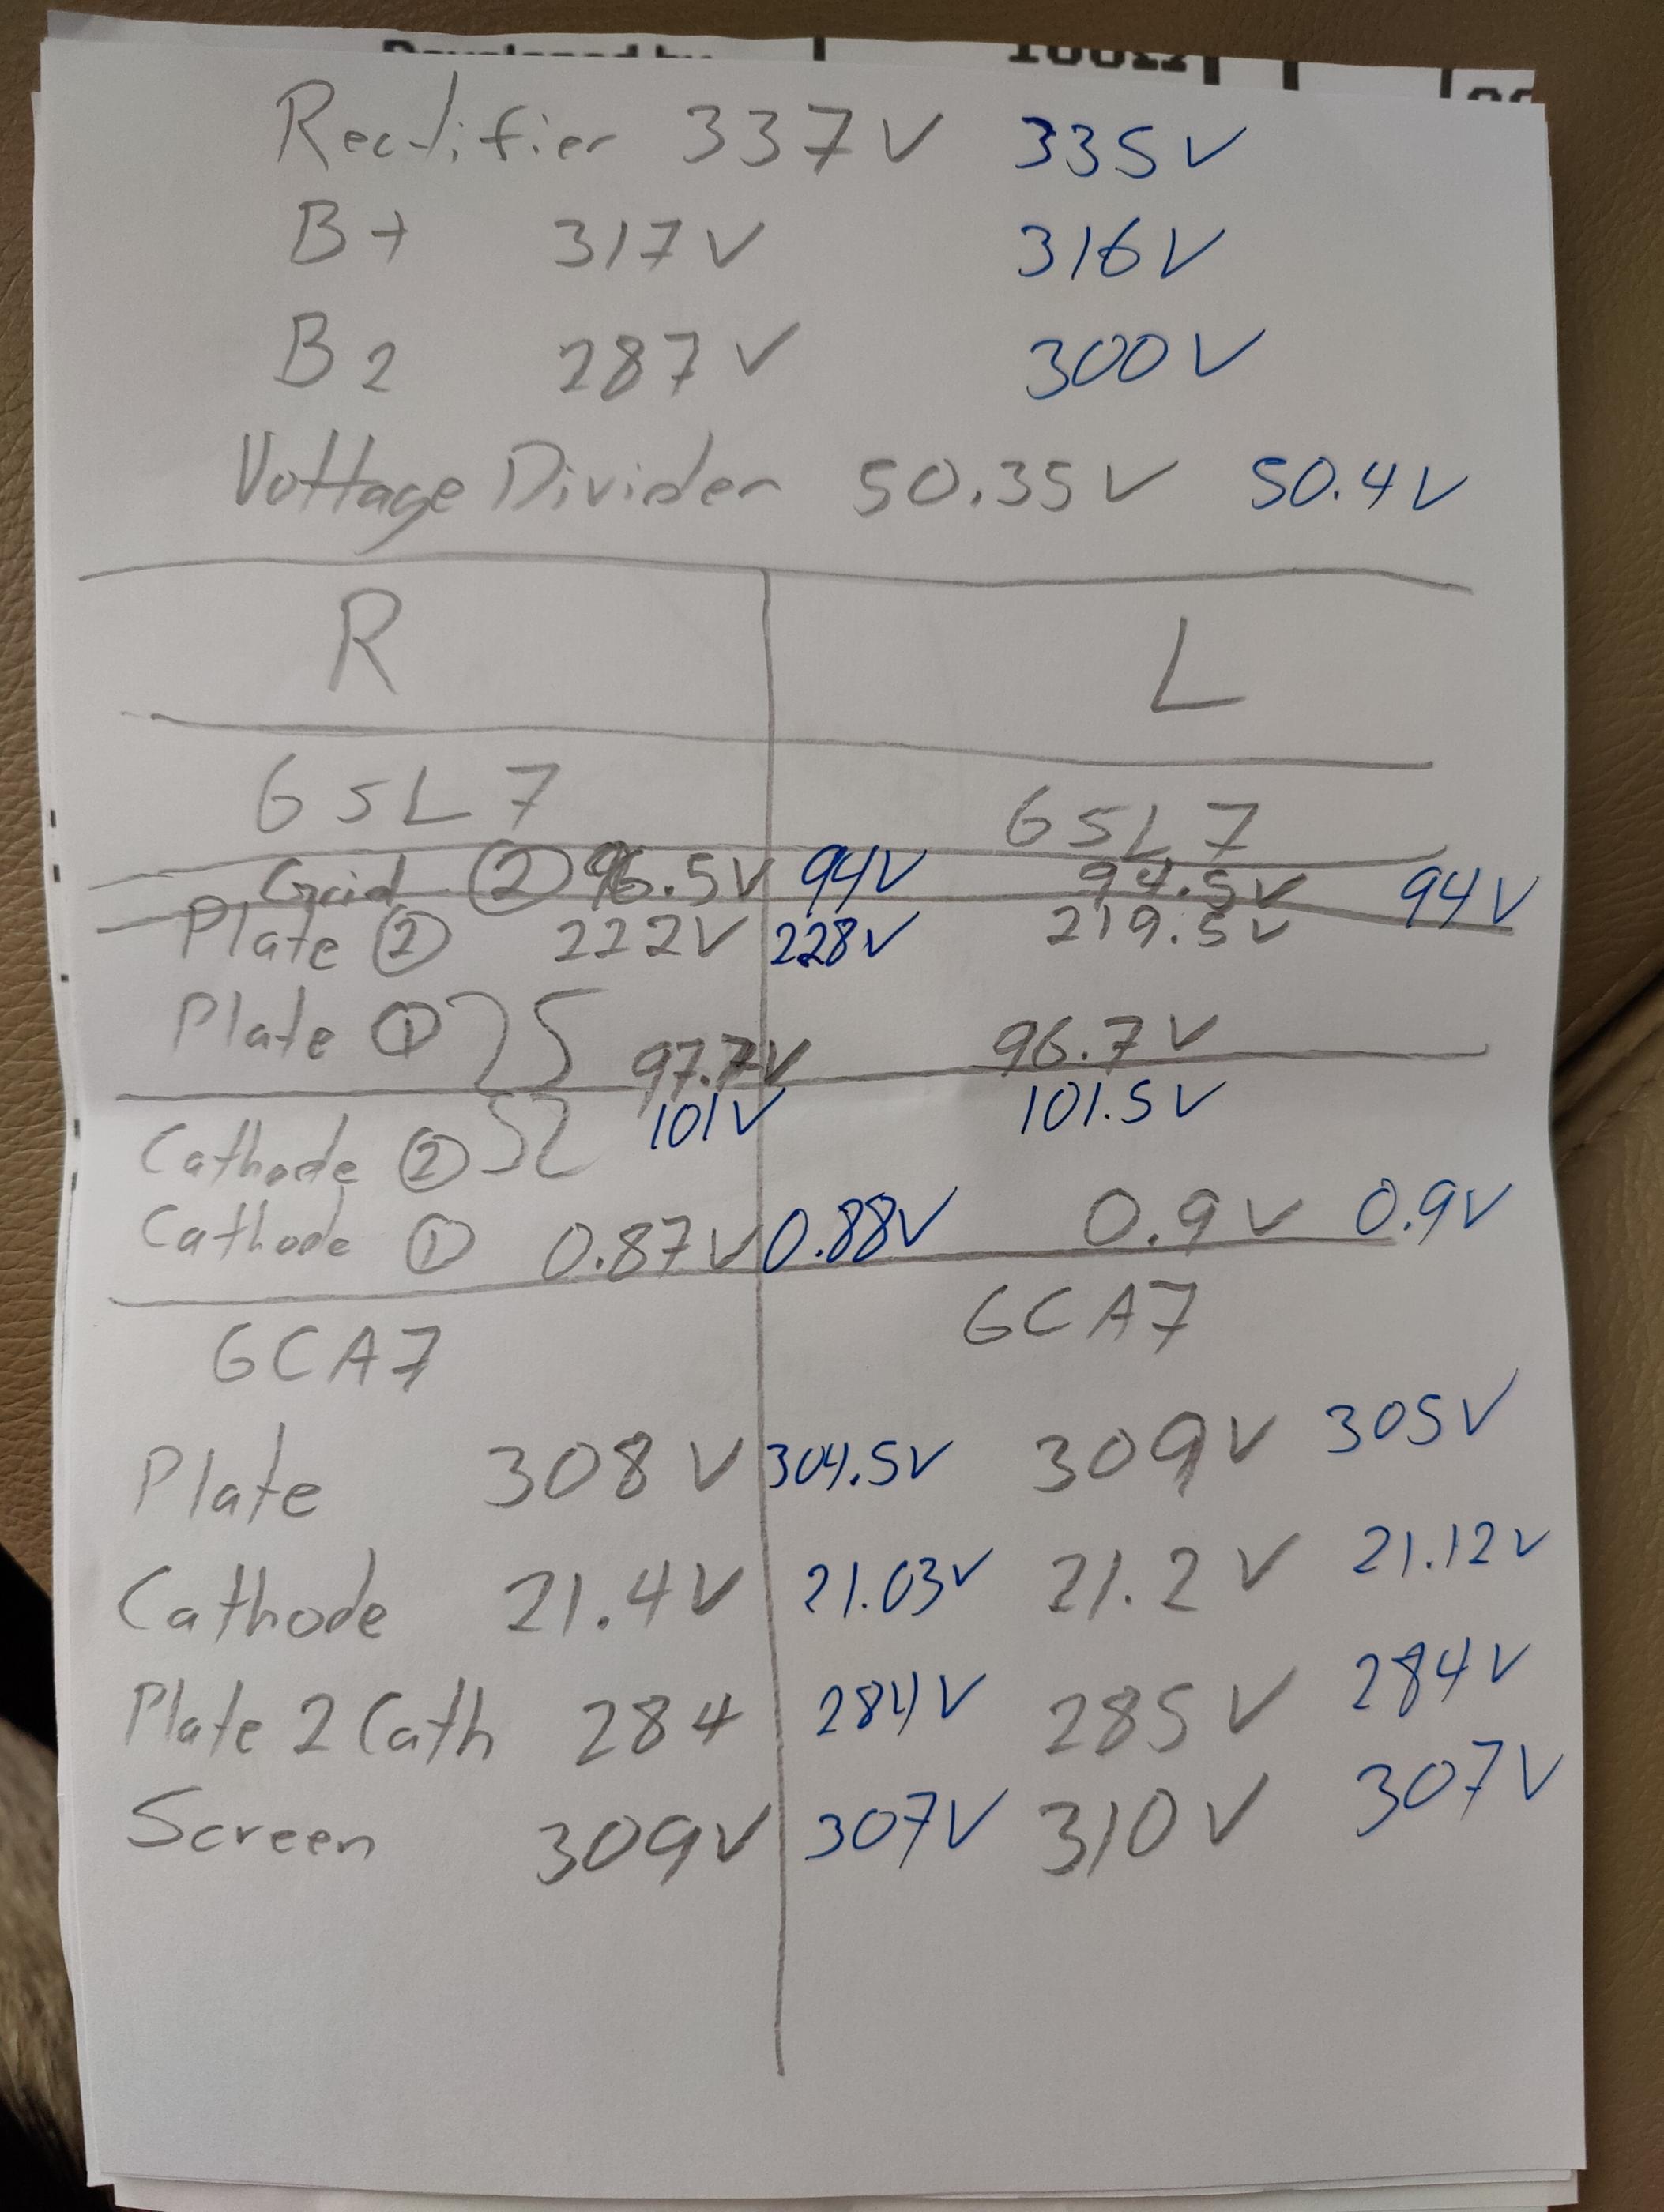 100Ω
Rectifier 337V 335V
B+ 317V 316V
B2 287V 300V
Voltage Divider 50.35V 50.4V
R L
6SL7 6SL7
Grid ② 96.5V 94V 94.5V 94V
Plate ② 222V 228V 219.5V
Plate ① 97.7V 96.7V
101V 101.5V
Cathode ②
Cathode ① 0.87V 0.88V 0.9V 0.9V
6CA7 6CA7
Plate 308V 304.5V 309V 305V
Cathode 21.4V 21.03V 21.2V 21.12V
Plate 2 Cath 284 284V 285V 284V
Screen 309V 307V 310V 307V